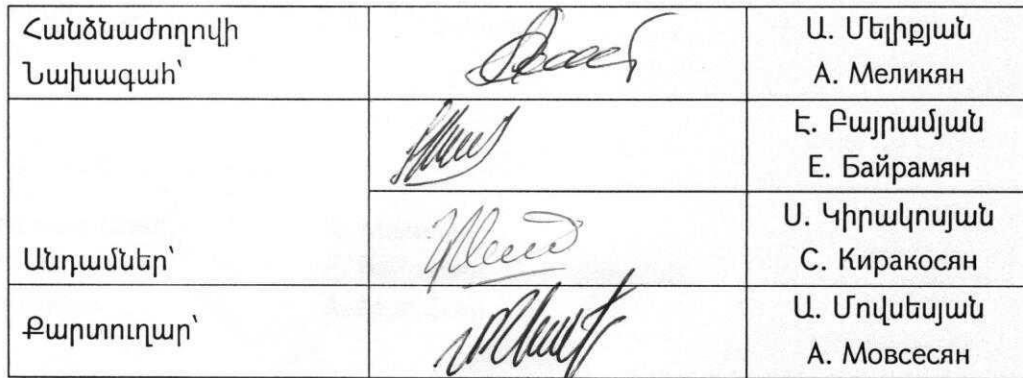 Հանձնաժողովի
Նախագահ՝
Ա. Մելիքյան
А. Меликян
Է. Բայրամյան
Е. Байрамян
Անդամներ՝
Ս. Կիրակոսյան
С. Киракосян
Քարտուղար՝
Ա. Մովսեսյան
А. Мовсесян